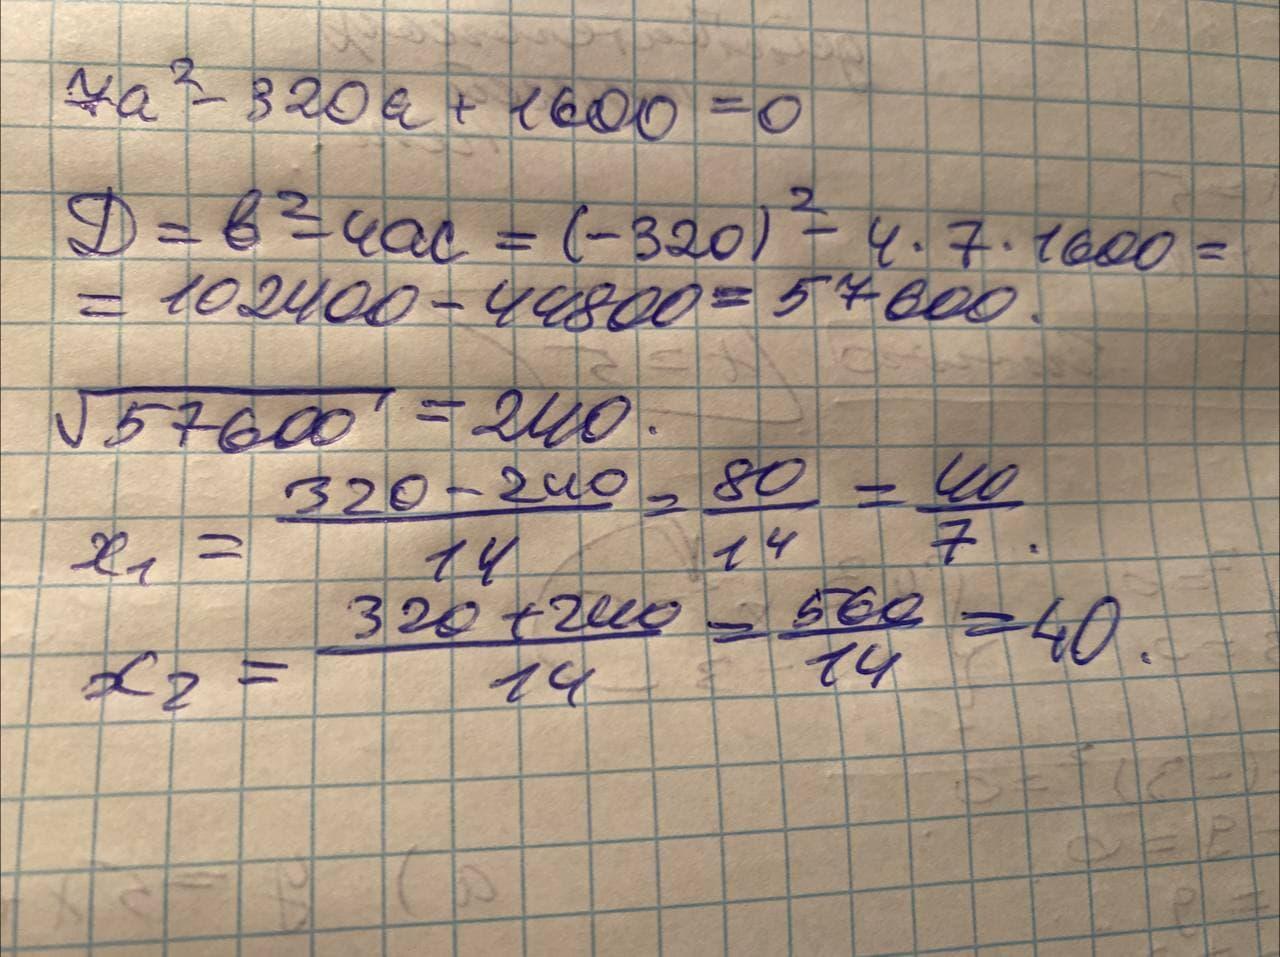 7a² - 320a + 1600 = 0
Д = в² - 4ac = (-320)² - 4 · 7 · 1600 =
= 102400 - 44800 = 57600.
√57600 = 240.
x₁ = (320 - 240)/14 = 80/14 = 40/7.
x₂ = (320 + 240)/14 = 560/14 = 40.